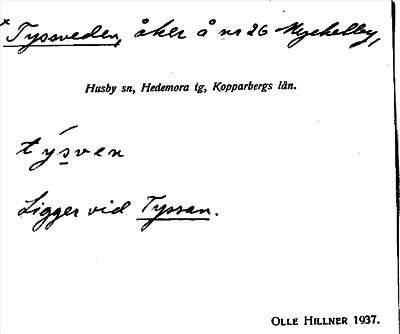 × Tyssveden, åker å nr 26 Myckelby,
Husby sn, Hedemora tg, Kopparbergs län.
týsven
Ligger vid Tyssan.
OLLE HILLNER 1937.